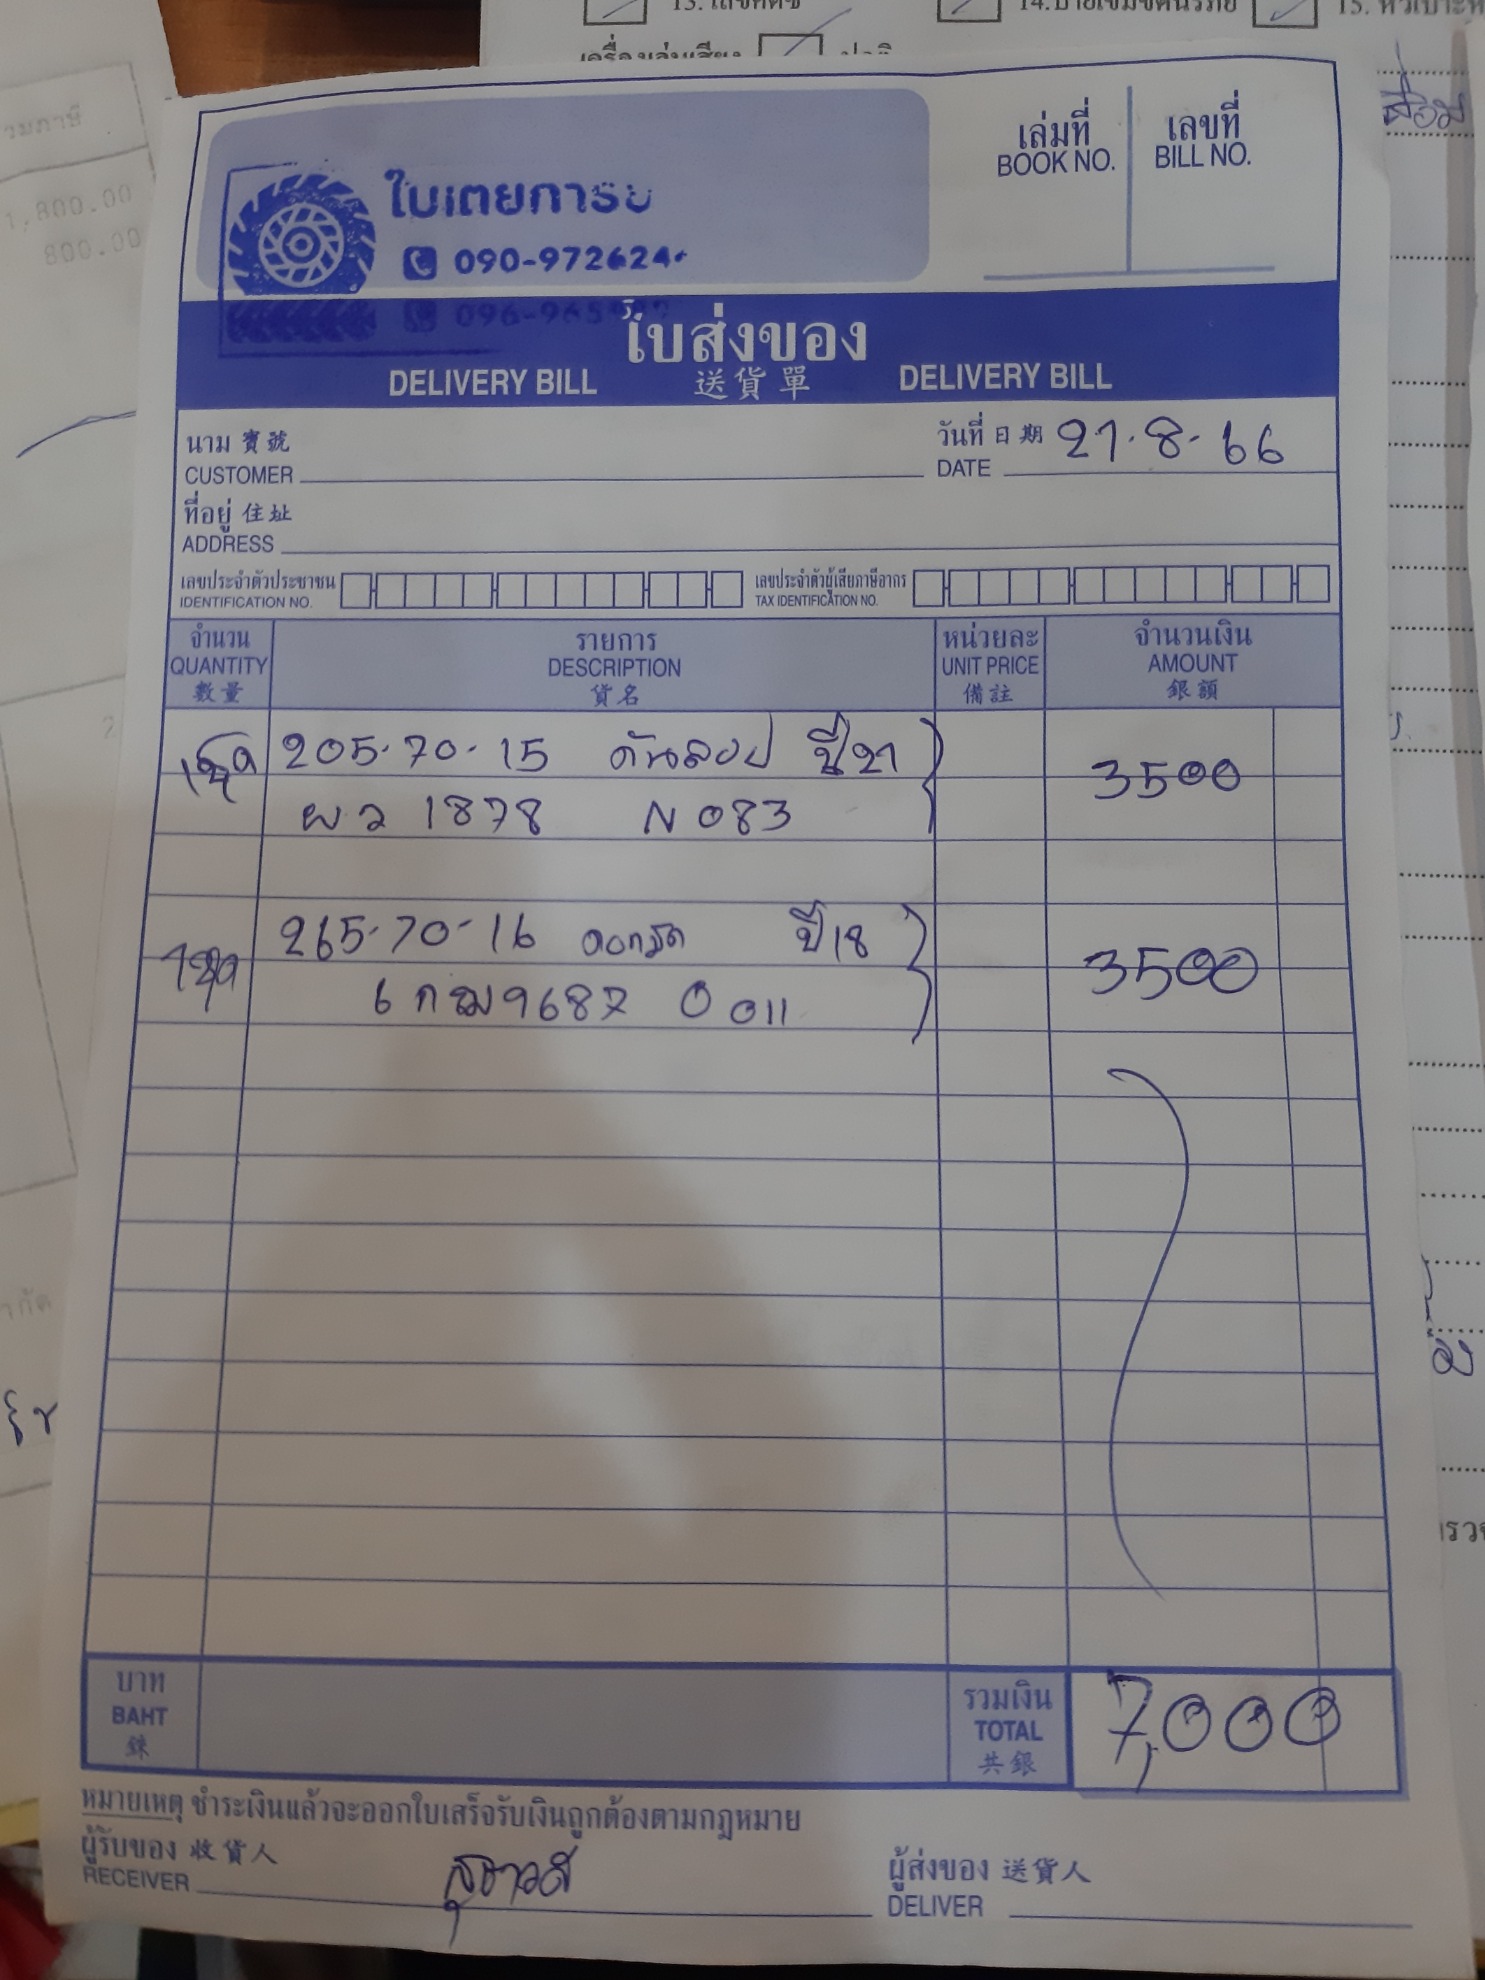 13. เลขคัสซี
วมภาษี
1,800.00
800.00
เล่มที่ เลขที่
BOOK NO. BILL NO.
ใบเตยการย
090-972624
096-965
ใบส่งของ
DELIVERY BILL 送貨單 DELIVERY BILL
นาม 寳號 วันที่ 日期 21.8.66
CUSTOMER DATE
ที่อยู่ 住址
ADDRESS
เลขประจำตัวประชาชน เลขประจำตัวผู้เสียภาษีอากร
IDENTIFICATION NO. TAX IDENTIFICATION NO.
จำนวน รายการ หน่วยละ จำนวนเงิน
QUANTITY DESCRIPTION UNIT PRICE AMOUNT
數量 貨名 備註 銀額
1ชุด 205-70-15 ดันลอป ปี21 3500
ผว 1878 N083
1ชุด 265-70-16 ดอกรถ ปี18 3500
6กฒ9687 O 011
บาท รวมเงิน 7,000
BAHT TOTAL
銖 共銀
หมายเหตุ ชำระเงินแล้วจะออกใบเสร็จรับเงินถูกต้องตามกฎหมาย
ผู้รับของ 收貨人 ผู้ส่งของ 送貨人
RECEIVER DELIVER